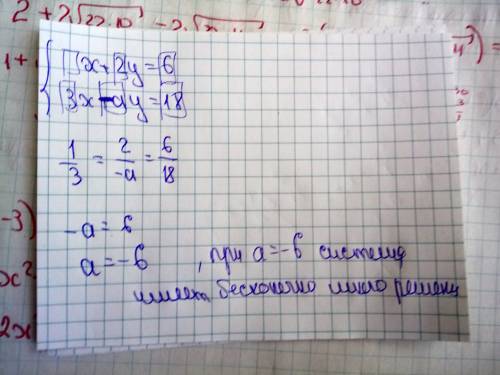 2 + 2√22·10 - 2·√
1 +
{ x + 2y = 6
3x - ay = 18
1/3 = 2/-a = 6/18
-a = 6
a = -6 , при a = -6 система
имеет бесконечно много решени
-3)
x²
2x